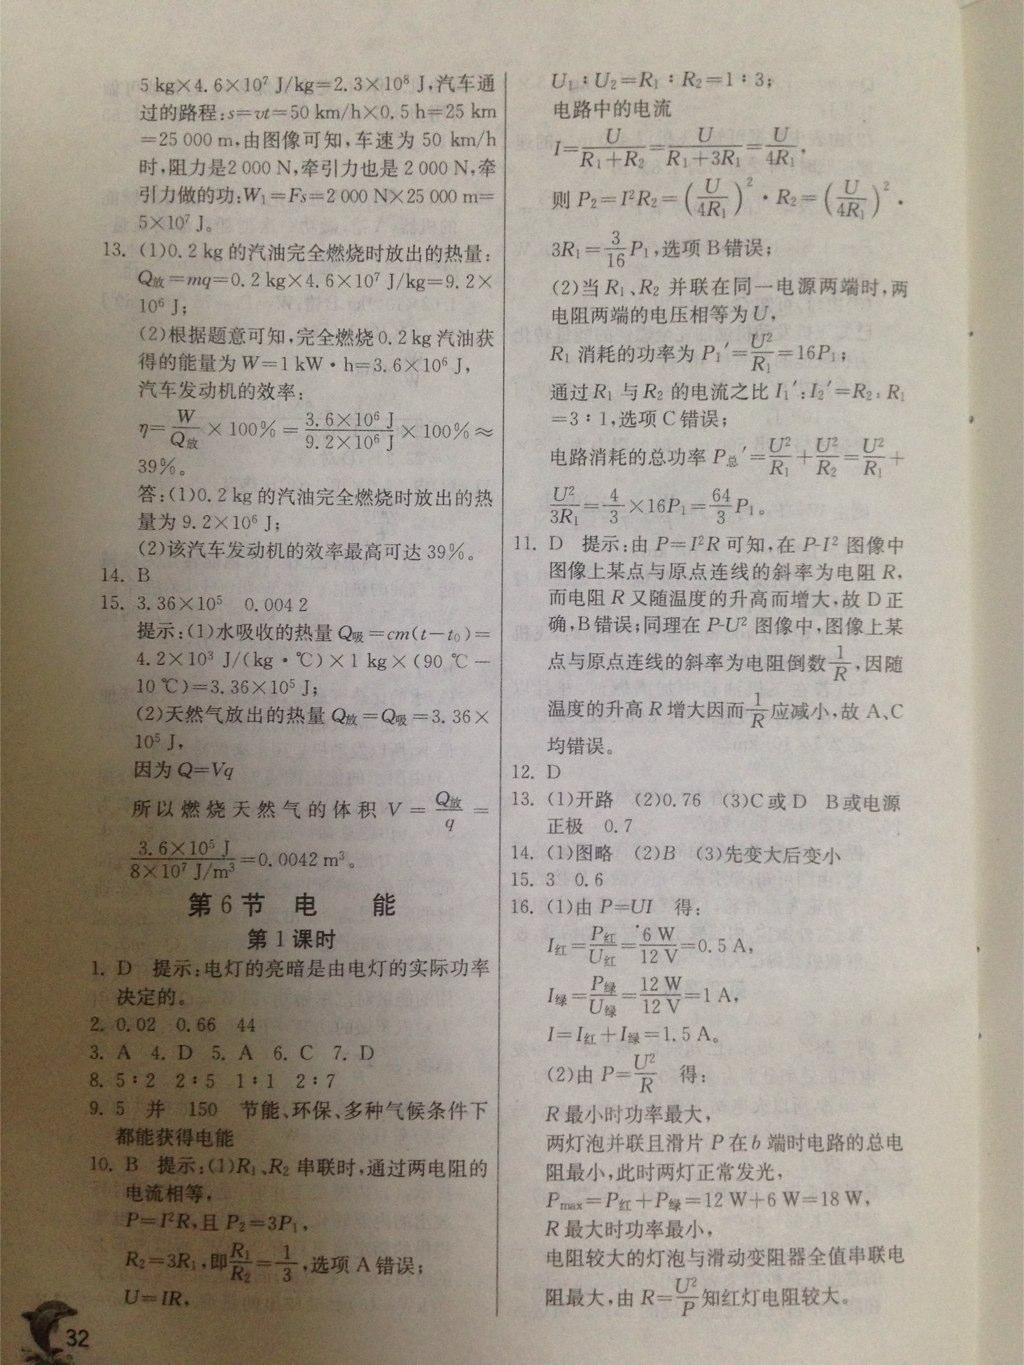 5 kg×4.6×10⁷ J/kg=2.3×10⁸ J,汽车通
过的路程:s=vt=50 km/h×0.5 h=25 km
=25 000 m,由图像可知,车速为 50 km/h
时,阻力是2 000 N,牵引力也是 2 000 N,牵
引力做的功:W₁=Fs=2 000 N×25 000 m=
5×10⁷ J。
13. (1)0.2 kg 的汽油完全燃烧时放出的热量:
Q放=mq=0.2 kg×4.6×10⁷ J/kg=9.2×
10⁶ J;
(2)根据题意可知,完全燃烧 0.2 kg 汽油获
得的能量为 W=1 kW·h=3.6×10⁶ J,
汽车发动机的效率:
η=W/Q放×100%=3.6×10⁶ J/9.2×10⁶ J×100%≈
39%。
答:(1)0.2 kg 的汽油完全燃烧时放出的热
量为 9.2×10⁶ J;
(2)该汽车发动机的效率最高可达 39%。
14. B
15. 3.36×10⁵ 0.004 2
提示:(1)水吸收的热量 Q吸=cm(t-t₀)=
4.2×10³ J/(kg·℃)×1 kg×(90 ℃-
10 ℃)=3.36×10⁵ J;
(2)天然气放出的热量 Q放=Q吸=3.36×
10⁵ J,
因为 Q=Vq
所以燃烧天然气的体积 V=Q放/q=
3.6×10⁵ J/8×10⁷ J/m³=0.0042 m³。
第 6 节 电 能
第 1 课时
1. D 提示:电灯的亮暗是由电灯的实际功率
决定的。
2. 0.02 0.66 44
3. A 4. D 5. A 6. C 7. D
8. 5∶2 2∶5 1∶1 2∶7
9. 5 并 150 节能、环保、多种气候条件下
都能获得电能
10. B 提示:(1)R₁、R₂ 串联时,通过两电阻的
电流相等,
P=I²R,且 P₂=3P₁,
R₂=3R₁,即R₁/R₂=1/3,选项 A 错误;
U=IR,
32
U₁∶U₂=R₁∶R₂=1∶3;
电路中的电流
I=U/R₁+R₂=U/R₁+3R₁=U/4R₁,
则 P₂=I²R₂=(U/4R₁)²·R₂=(U/4R₁)²·
3R₁=3/16P₁,选项 B 错误;
(2)当 R₁、R₂ 并联在同一电源两端时,两
电阻两端的电压相等为 U,
R₁ 消耗的功率为 P₁′=U²/R₁=16P₁;
通过 R₁ 与 R₂ 的电流之比 I₁′∶I₂′=R₂∶R₁
=3∶1,选项 C 错误;
电路消耗的总功率 P总′=U²/R₁+U²/R₂=U²/R₁+
U²/3R₁=4/3×16P₁=64/3P₁。
11. D 提示:由 P=I²R 可知,在 P-I² 图像中
图像上某点与原点连线的斜率为电阻 R,
而电阻 R 又随温度的升高而增大,故 D 正
确,B 错误;同理在 P-U² 图像中,图像上某
点与原点连线的斜率为电阻倒数1/R,因随
温度的升高 R 增大因而1/R应减小,故 A、C
均错误。
12. D
13. (1)开路 (2)0.76 (3)C 或 D B 或电源
正极 0.7
14. (1)图略 (2)B (3)先变大后变小
15. 3 0.6
16. (1)由 P=UI 得:
I红=P红/U红=6 W/12 V=0.5 A,
I绿=P绿/U绿=12 W/12 V=1 A,
I=I红+I绿=1.5 A。
(2)由 P=U²/R 得:
R 最小时功率最大,
两灯泡并联且滑片 P 在 b 端时电路的总电
阻最小,此时两灯正常发光,
Pmax=P红+P绿=12 W+6 W=18 W,
R 最大时功率最小,
电阻较大的灯泡与滑动变阻器全值串联电
阻最大,由 R=U²/P知红灯电阻较大。